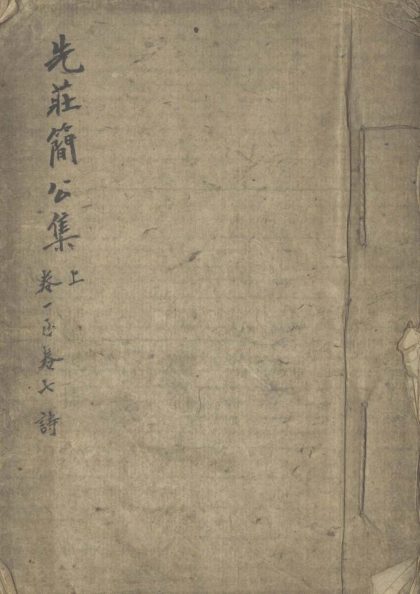 先莊簡公集
上
卷一至卷七 詩